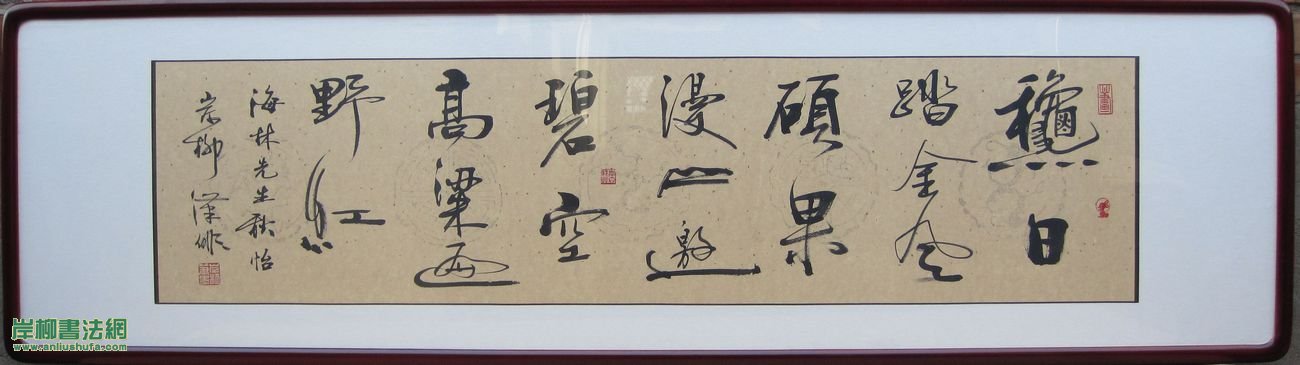 龝日
踏金風
碩果
漫山邀
碧空
髙粱遍
野紅
海林先生秋怡
岸柳漢俳
岸柳書法網
www.anliushufa.com